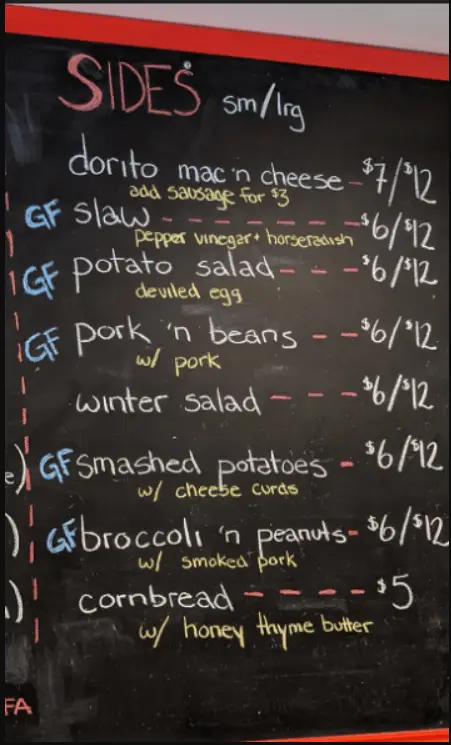 SIDES sm/lrg
dorito mac 'n cheese - $7/$12
add sausage for $3
GF slaw - - - - - - - $6/$12
pepper vinegar + horseradish
GF potato salad - - - $6/$12
deviled egg
GF pork 'n beans - - $6/$12
w/ pork
winter salad - - - - $6/$12
GF smashed potatoes - $6/$12
w/ cheese curds
GF broccoli 'n peanuts - $6/$12
w/ smoked pork
cornbread - - - - - $5
w/ honey thyme butter
FA